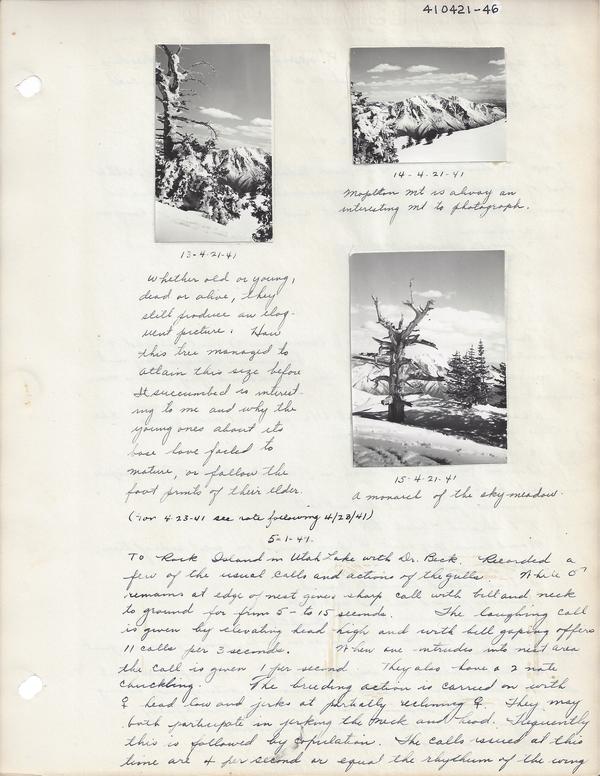 410421-46
13-4-21-41
14-4-21-41
Mapleton Mt is alway an
interesting mt to photograph.
Whether old or young,
dead or alive, they
still produce an eloq-
uent picture. How
this tree managed to
attain this size before
it succumbed is interest-
ing to me and why the
young ones about its
base have failed to
mature, or follow the
foot prints of their elder.
15-4-21-41
A monarch of the sky meadow.
(For 4-23-41 see note following 4/28/41)
5-1-41.
To Rock Island in Utah Lake with Dr. Beck. Recorded a
few of the usual calls and actions of the gulls. While ♂
remains at edge of nest gives sharp call with bill and neck
to ground for from 5- to 15 seconds. The laughing call
is given by elevating head high and with bill gaping offers
11 calls per 3 seconds. When one intrudes into nest area
the call is given 1 per second They also have a 2 note
chuckling. The breeding action is carried on with
♀ head low and jerks at partially reclining ♀. They may
both participate in jerking the neck and head. Frequently
this is followed by copulation. The calls issued at this
time are 4 per second or equal the rhythum of the wing